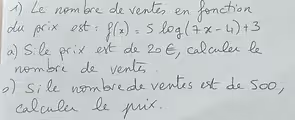 1) Le nombre de ventes en fonction
du prix est : f(x) = 5 log(7x - 4) + 3
a) Si le prix est de 20 €, calculer le
nombre de ventes.
b) Si le nombre de ventes est de 500,
calculer le prix.